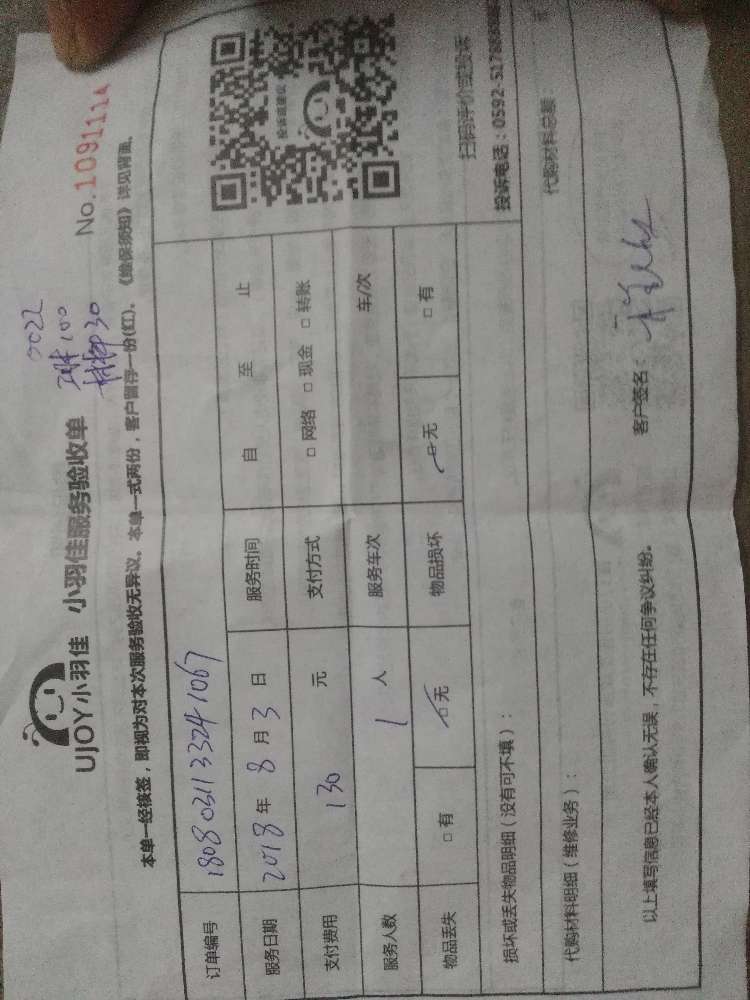 0022
琳100
材料30
UJOY小羽佳 小羽佳服务验收单 No.1091114
本单一经核签，即视为对本次服务验收无异议。本单一式两份，客户留存一份(红)。《维保须知》详见背面。
订单编号 1808031133241067
服务日期 2018年8月3日 服务时间 自 至 止
支付费用 130 元 支付方式 □ 网络 □ 现金 □ 转账
服务人数 1 人 服务车次 车/次
物品丢失 □ 有 □ 无 物品损坏 □ 无 □ 有
投诉或建议
扫码评价或投诉
投诉电话：0592-5178
损坏或丢失物品明细（没有可不填）：
代购材料明细（维修业务）： 代购材料总额： 元
以上填写信息已经本人确认无误，不存在任何争议纠纷。 客户签名：